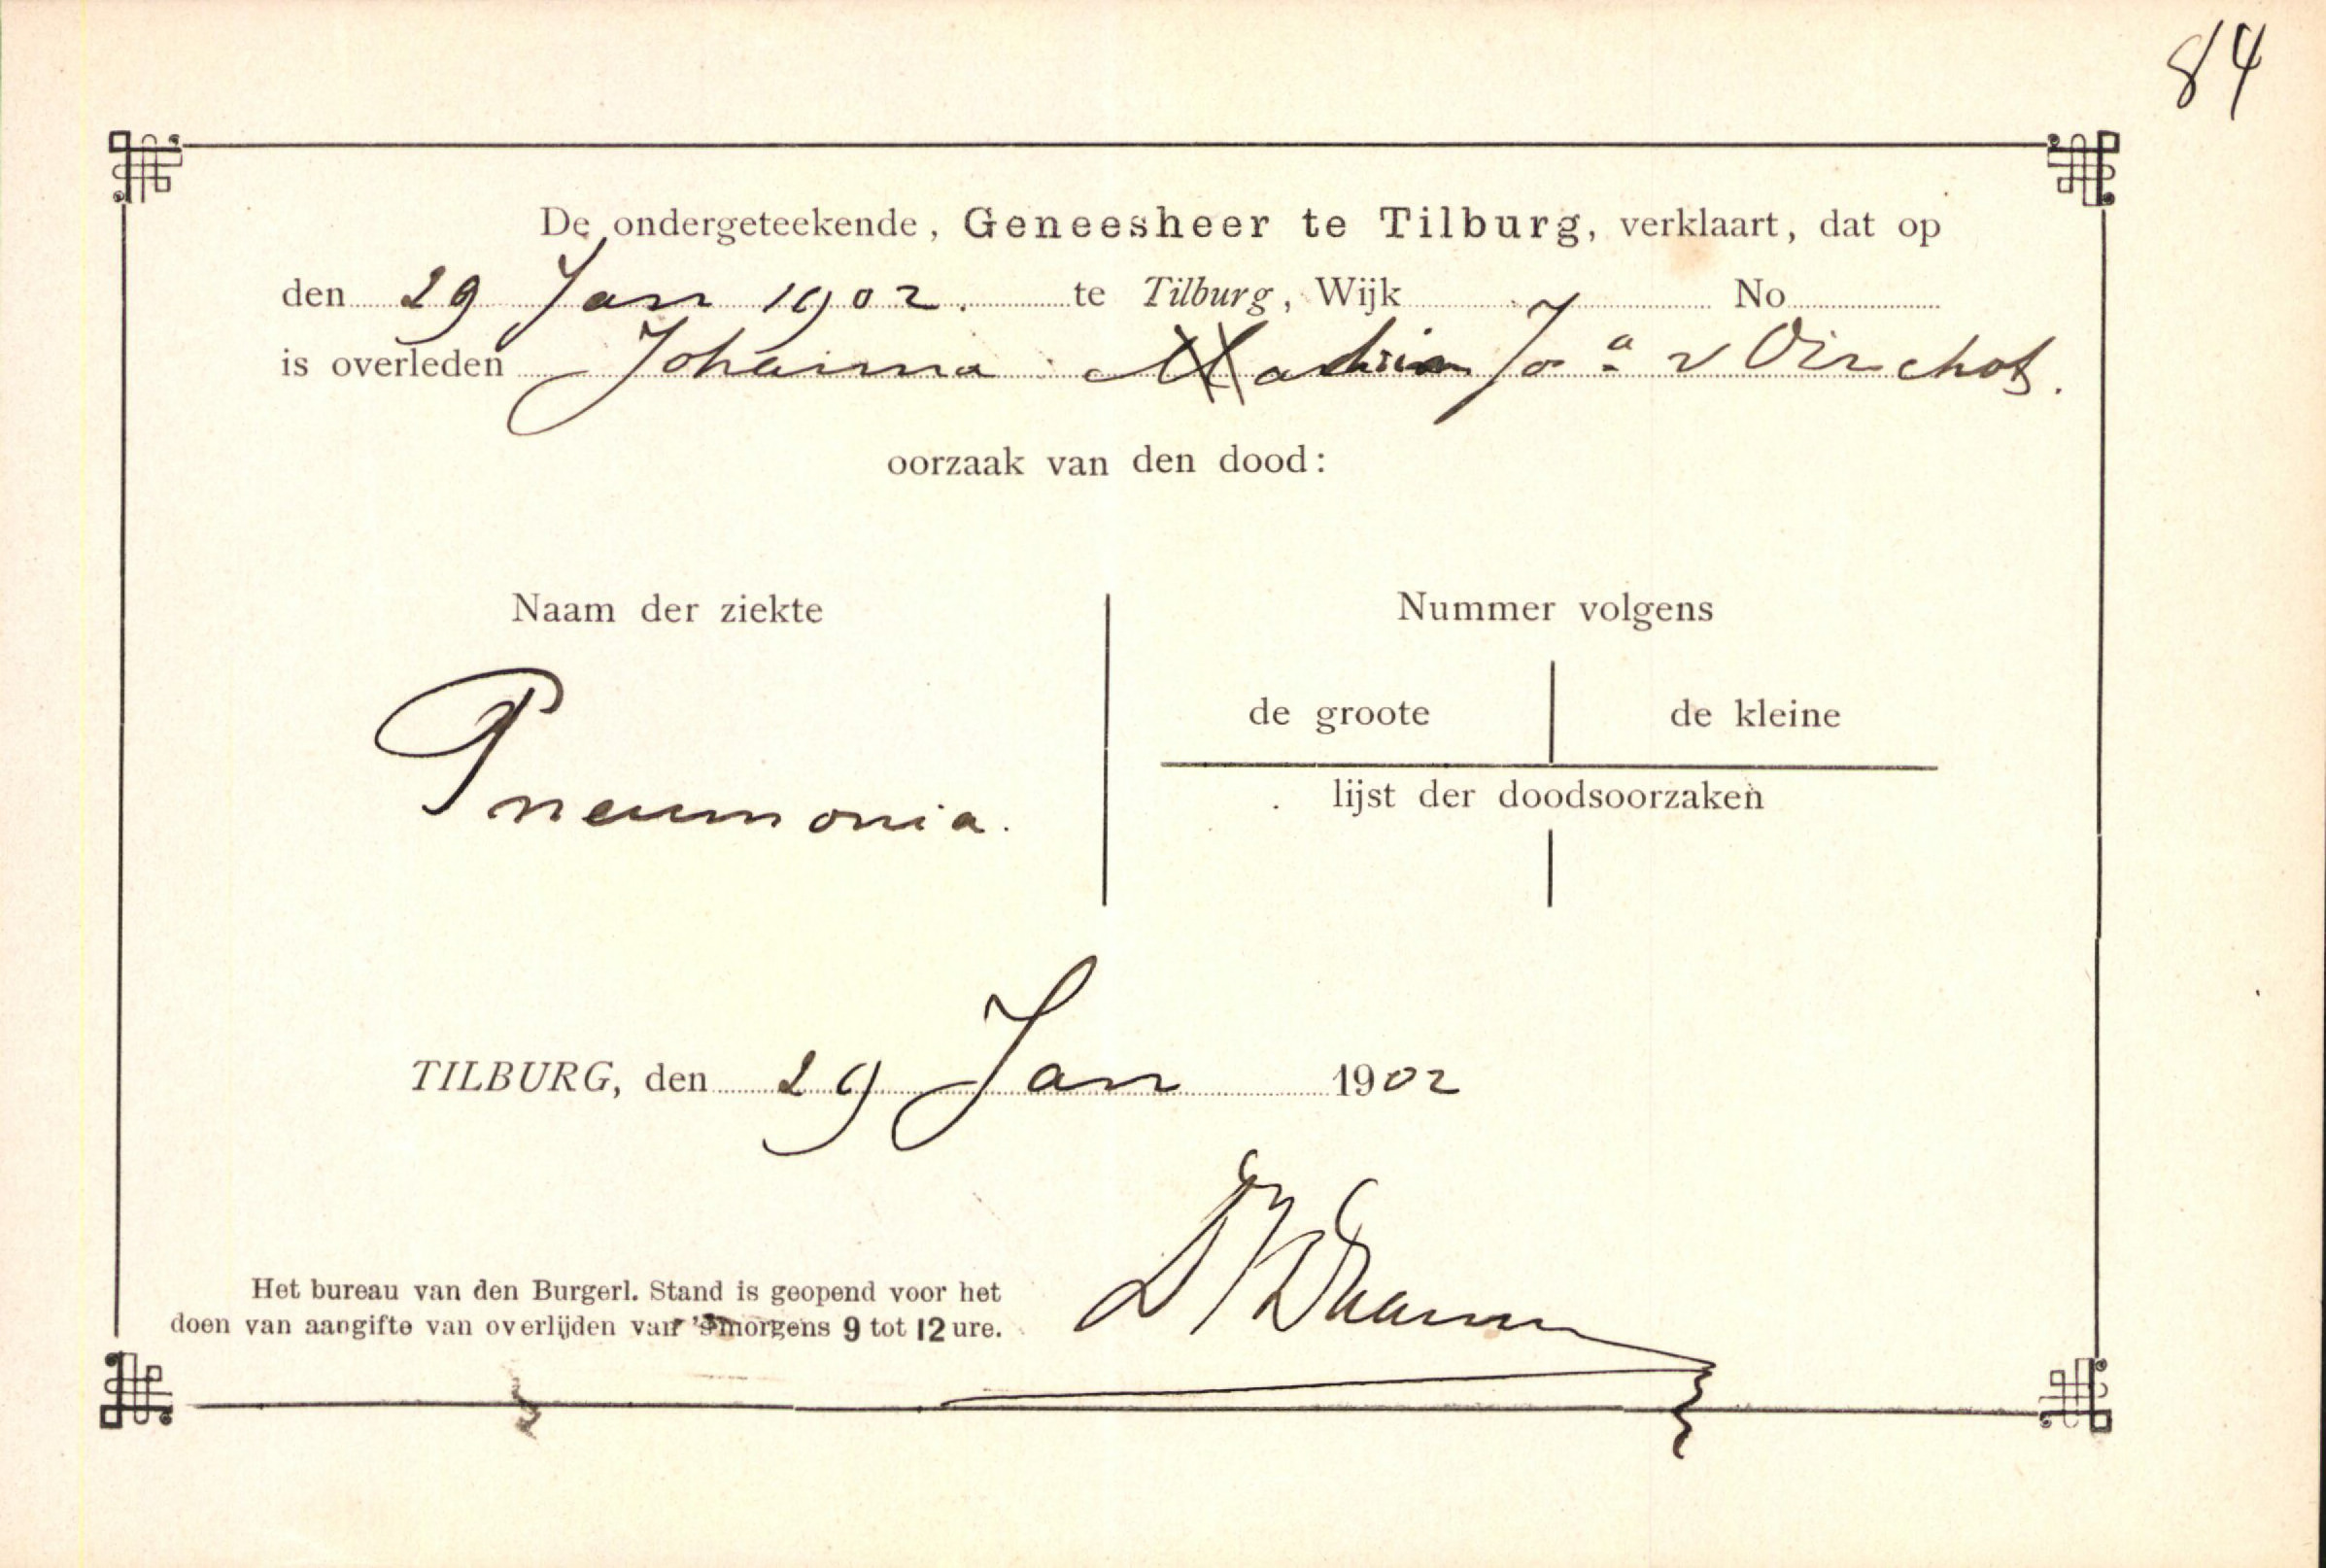 84
De ondergeteekende, Geneesheer te Tilburg, verklaart, dat op
den 29 Jan 1902. te Tilburg, Wijk No
is overleden Johanna v Oirschot.
oorzaak van den dood:
Naam der ziekte
Pneumonia.
Nummer volgens
de groote de kleine
lijst der doodsoorzaken
TILBURG, den 29 Jan 1902
Het bureau van den Burgerl. Stand is geopend voor het
doen van aangifte van overlijden van 's morgens 9 tot 12 ure.